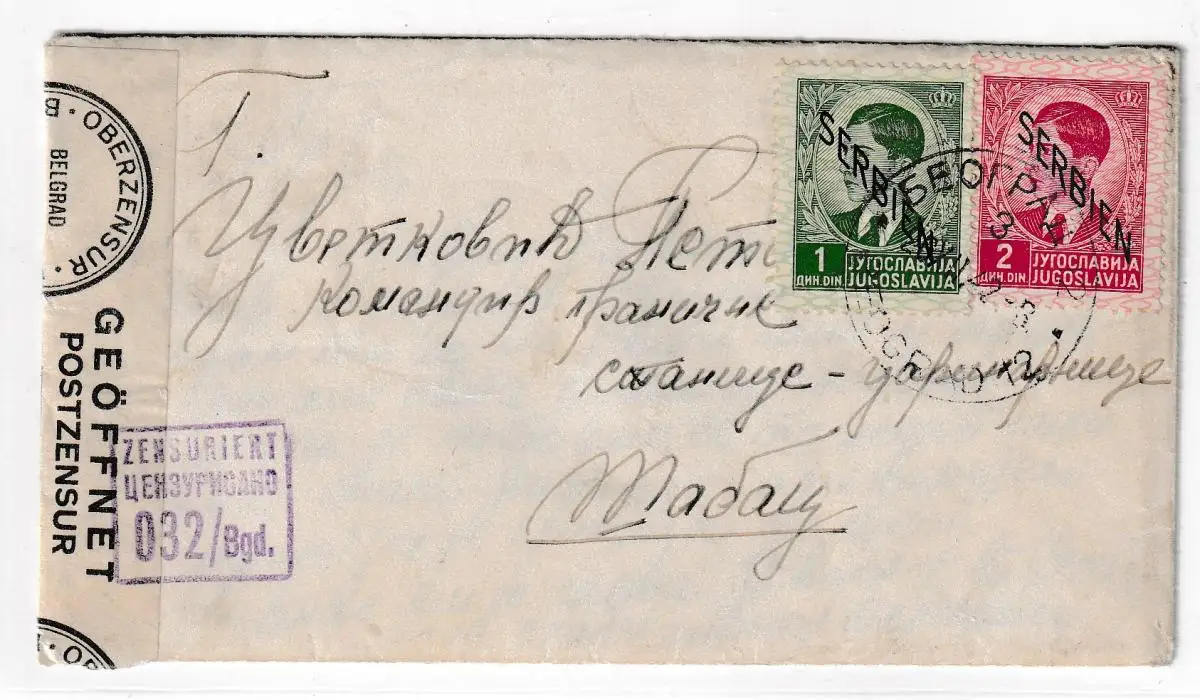 Г.
Цветковић Пет
Командир гранičне
станице - царинарнице
Шабац
SERBIEN
1
ДИН. DIN.
ЈУГОСЛАВИЈА
JUGOSLAVIJA
SERBIEN
2
ДИН. DIN.
ЈУГОСЛАВИЈА
JUGOSLAVIJA
БЕОГРАД 2
BEOGRAD 2
OBERZENSUR
BELGRAD
GEÖFFNET
POSTZENSUR
ZENSURIERT
ЦЕНЗУРИСАНО
032/Bgd.